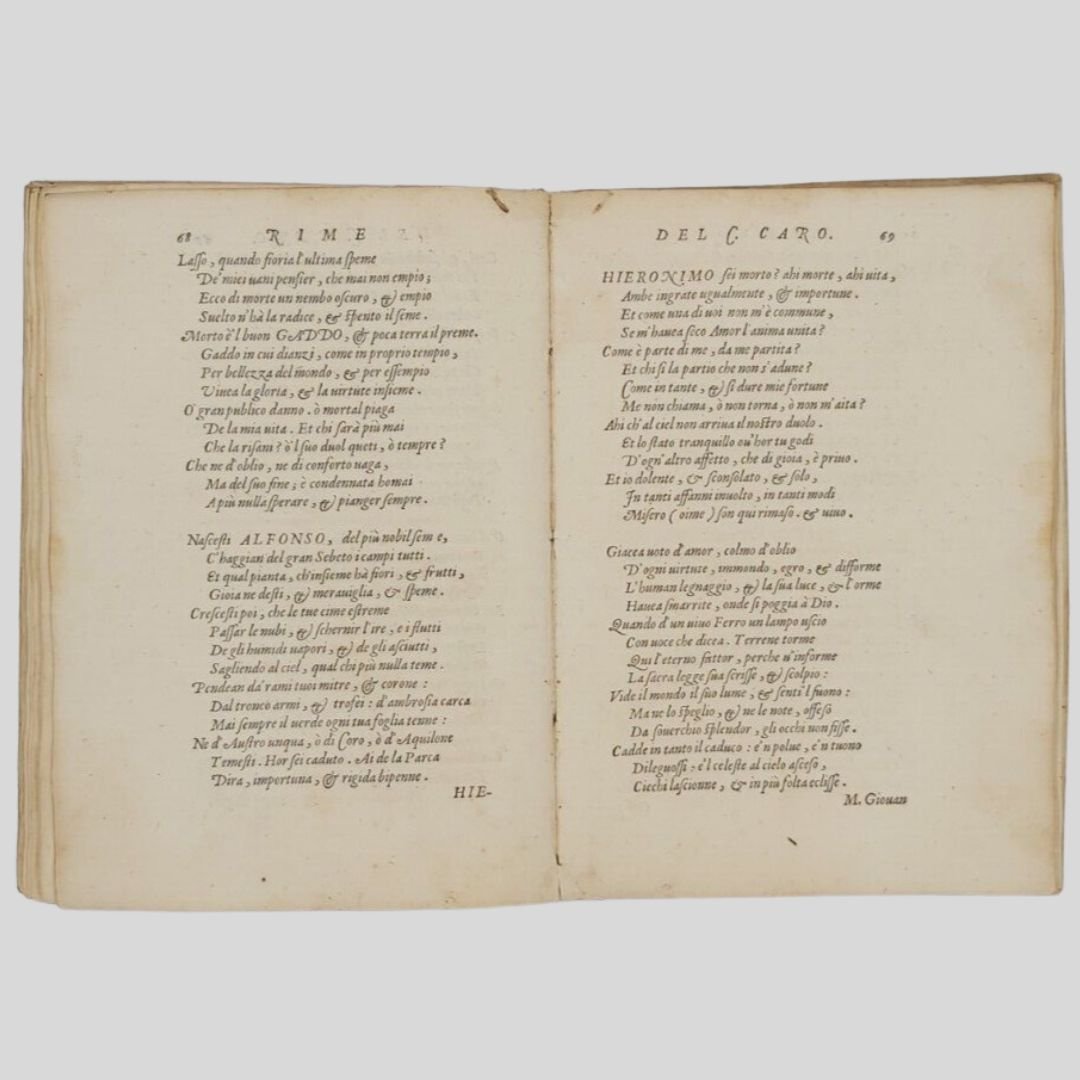 68 RIME
Lasso, quando fioria l'ultima speme
De' miei uani pensier, che mai non empio;
Ecco di morte un nembo oscuro, & empio
Suelto n'hà la radice, & spento il seme.
Morto è'l buon GADDO, & poca terra il preme.
Gaddo in cui dianzi, come in proprio tempio,
Per bellezza del mondo, & per essempio
Viuea la gloria, & la uirtute insieme.
O' gran publico danno. ò mortal piaga
De la mia uita. Et chi sarà più mai
Che la risani? ò'l suo duol queti, ò tempre?
Che ne d'oblio, ne di conforto uaga,
Ma del suo fine; è condennata homai
A più nulla sperare, & pianger sempre.
Nascesti ALFONSO, del più nobil seme,
C'haggian del gran Sebeto i campi tutti.
Et qual pianta, ch'insieme hà fiori, & frutti,
Gioia ne desti, & merauiglia, & speme.
Crescesti poi, che le tue cime estreme
Passar le nubi, & schernir l'ire, e i flutti
De gli humidi uapori, & de gli asciutti,
Sagliendo al ciel, qual chi più nulla teme.
Pendean da' rami tuoi mitre, & corone:
Dal tronco armi, & trofei: d'ambrosia carca
Mai sempre il uerde ogni tua foglia tenne:
Ne d'Austro unqua, ò di Coro, ò d'Aquilone
Temesti. Hor sei caduto. Ai de la Parca
Dira, importuna, & rigida bipenne.
HIE-
DEL C. CARO. 69
HIERONIMO sei morto? ahi morte, ahi uita,
Ambe ingrate ugualmente, & importune.
Et come una di uoi non m'è commune,
Se m'hauea seco Amor l'anima unita?
Come è parte di me, da me partita?
Et chi si la partio che non s'adune?
Come in tante, & sì dure mie fortune
Me non chiama, ò non torna, ò non m'aita?
Ahi ch'al ciel non arriua il nostro duolo.
Et lo stato tranquillo ou'hor tu godi
D'ogn'altro affetto, che di gioia, è priuo.
Et io dolente, & sconsolato, & solo,
In tanti affanni inuolto, in tanti modi
Misero (oime) son qui rimaso. & uiuo.
Giacea uoto d'amor, colmo d'oblio
D'ogni uirtute, immondo, egro, & difforme
L'human legnaggio, & la sua luce, & l'orme
Hauea smarrite, onde si poggia à Dio.
Quando d'un uiuo Ferro un lampo uscio
Con uoce che dicea. Terrene torme
Qui l'eterno fattor, perche u'informe
La sacra legge sua scrisse, & scolpio:
Vide il mondo il suo lume, & sentì'l suono:
Ma ne lo speglio, & ne le note, offeso
Da souerchio splendor, gli occhi non fisse.
Cadde in tanto il caduco: e'n polue, e'n tuono
Dileguossi; e'l celeste al cielo asceso,
Ciechi lascionne, & in più folta eclisse.
M. Giouan